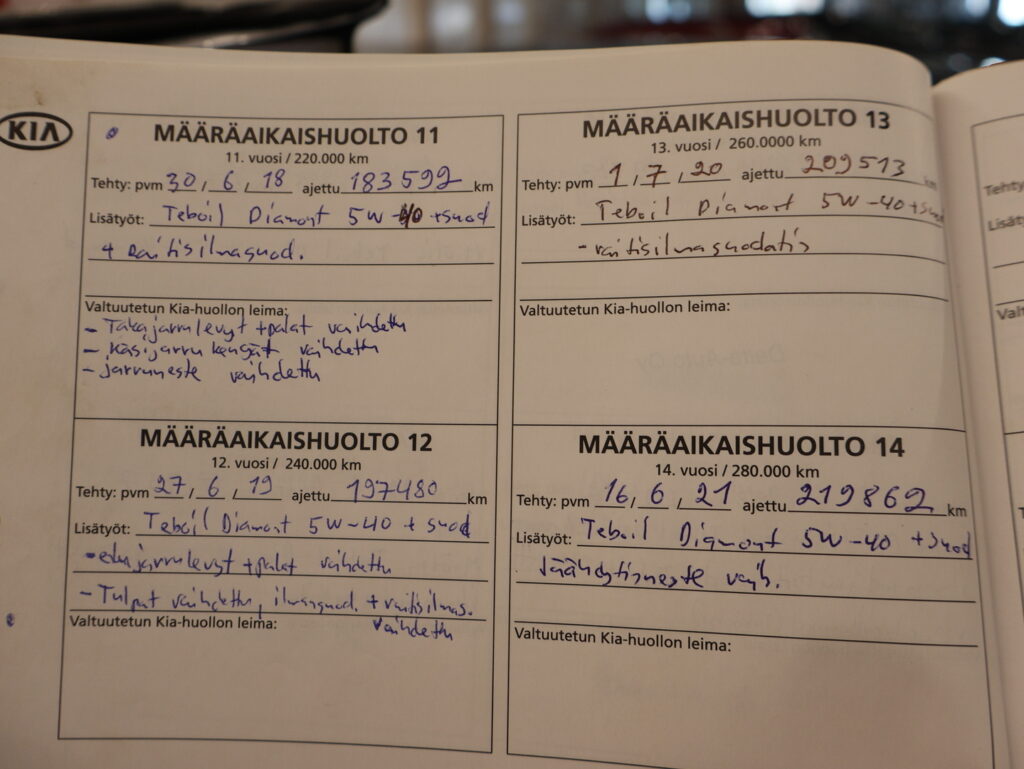 KIA
MÄÄRÄAIKAISHUOLTO 11
11. vuosi / 220.000 km
Tehty: pvm 30, 6, 18 ajettu 183592 km
Lisätyöt: Teboil Diamont 5W-40 + suod
+ raitisilmasuod.
Valtuutetun Kia-huollon leima:
- Takajarrulevyt + palat vaihdettu
- Käsijarru kengät vaihdettu
- jarruneste vaihdettu
MÄÄRÄAIKAISHUOLTO 12
12. vuosi / 240.000 km
Tehty: pvm 27, 6, 19 ajettu 197480 km
Lisätyöt: Teboil Diamont 5W-40 + suod
- etujarrulevyt + palat vaihdettu
- Tulpat vaihdettu, ilmansuod. + raitisilmas.
Valtuutetun Kia-huollon leima: vaihdettu
MÄÄRÄAIKAISHUOLTO 13
13. vuosi / 260.0000 km
Tehty: pvm 1, 7, 20 ajettu 209513 km
Lisätyöt: Teboil Diamont 5W-40 + suod
- raitisilmasuodatis
Valtuutetun Kia-huollon leima:
MÄÄRÄAIKAISHUOLTO 14
14. vuosi / 280.000 km
Tehty: pvm 16, 6, 21 ajettu 219862 km
Lisätyöt: Teboil Diamont 5W-40 + suod
Jäähdytisneste vaih.
Valtuutetun Kia-huollon leima:
Tehty
Lisät
Valt